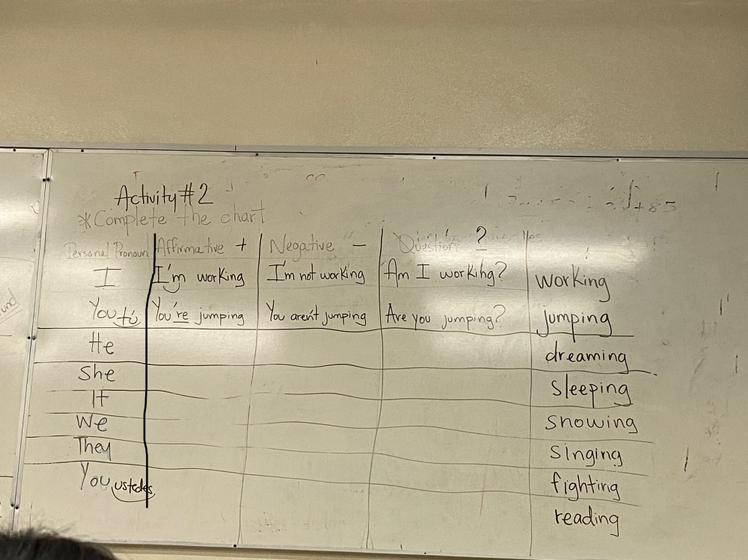 Activity #2
*Complete the chart
Personal Pronoun Affirmative + Negative - Question ?
I I'm working I'm not working Am I working? working
You tú You're jumping You aren't jumping Are you jumping? jumping
He dreaming
She sleeping
It snowing
We singing
They fighting
You ustedes reading